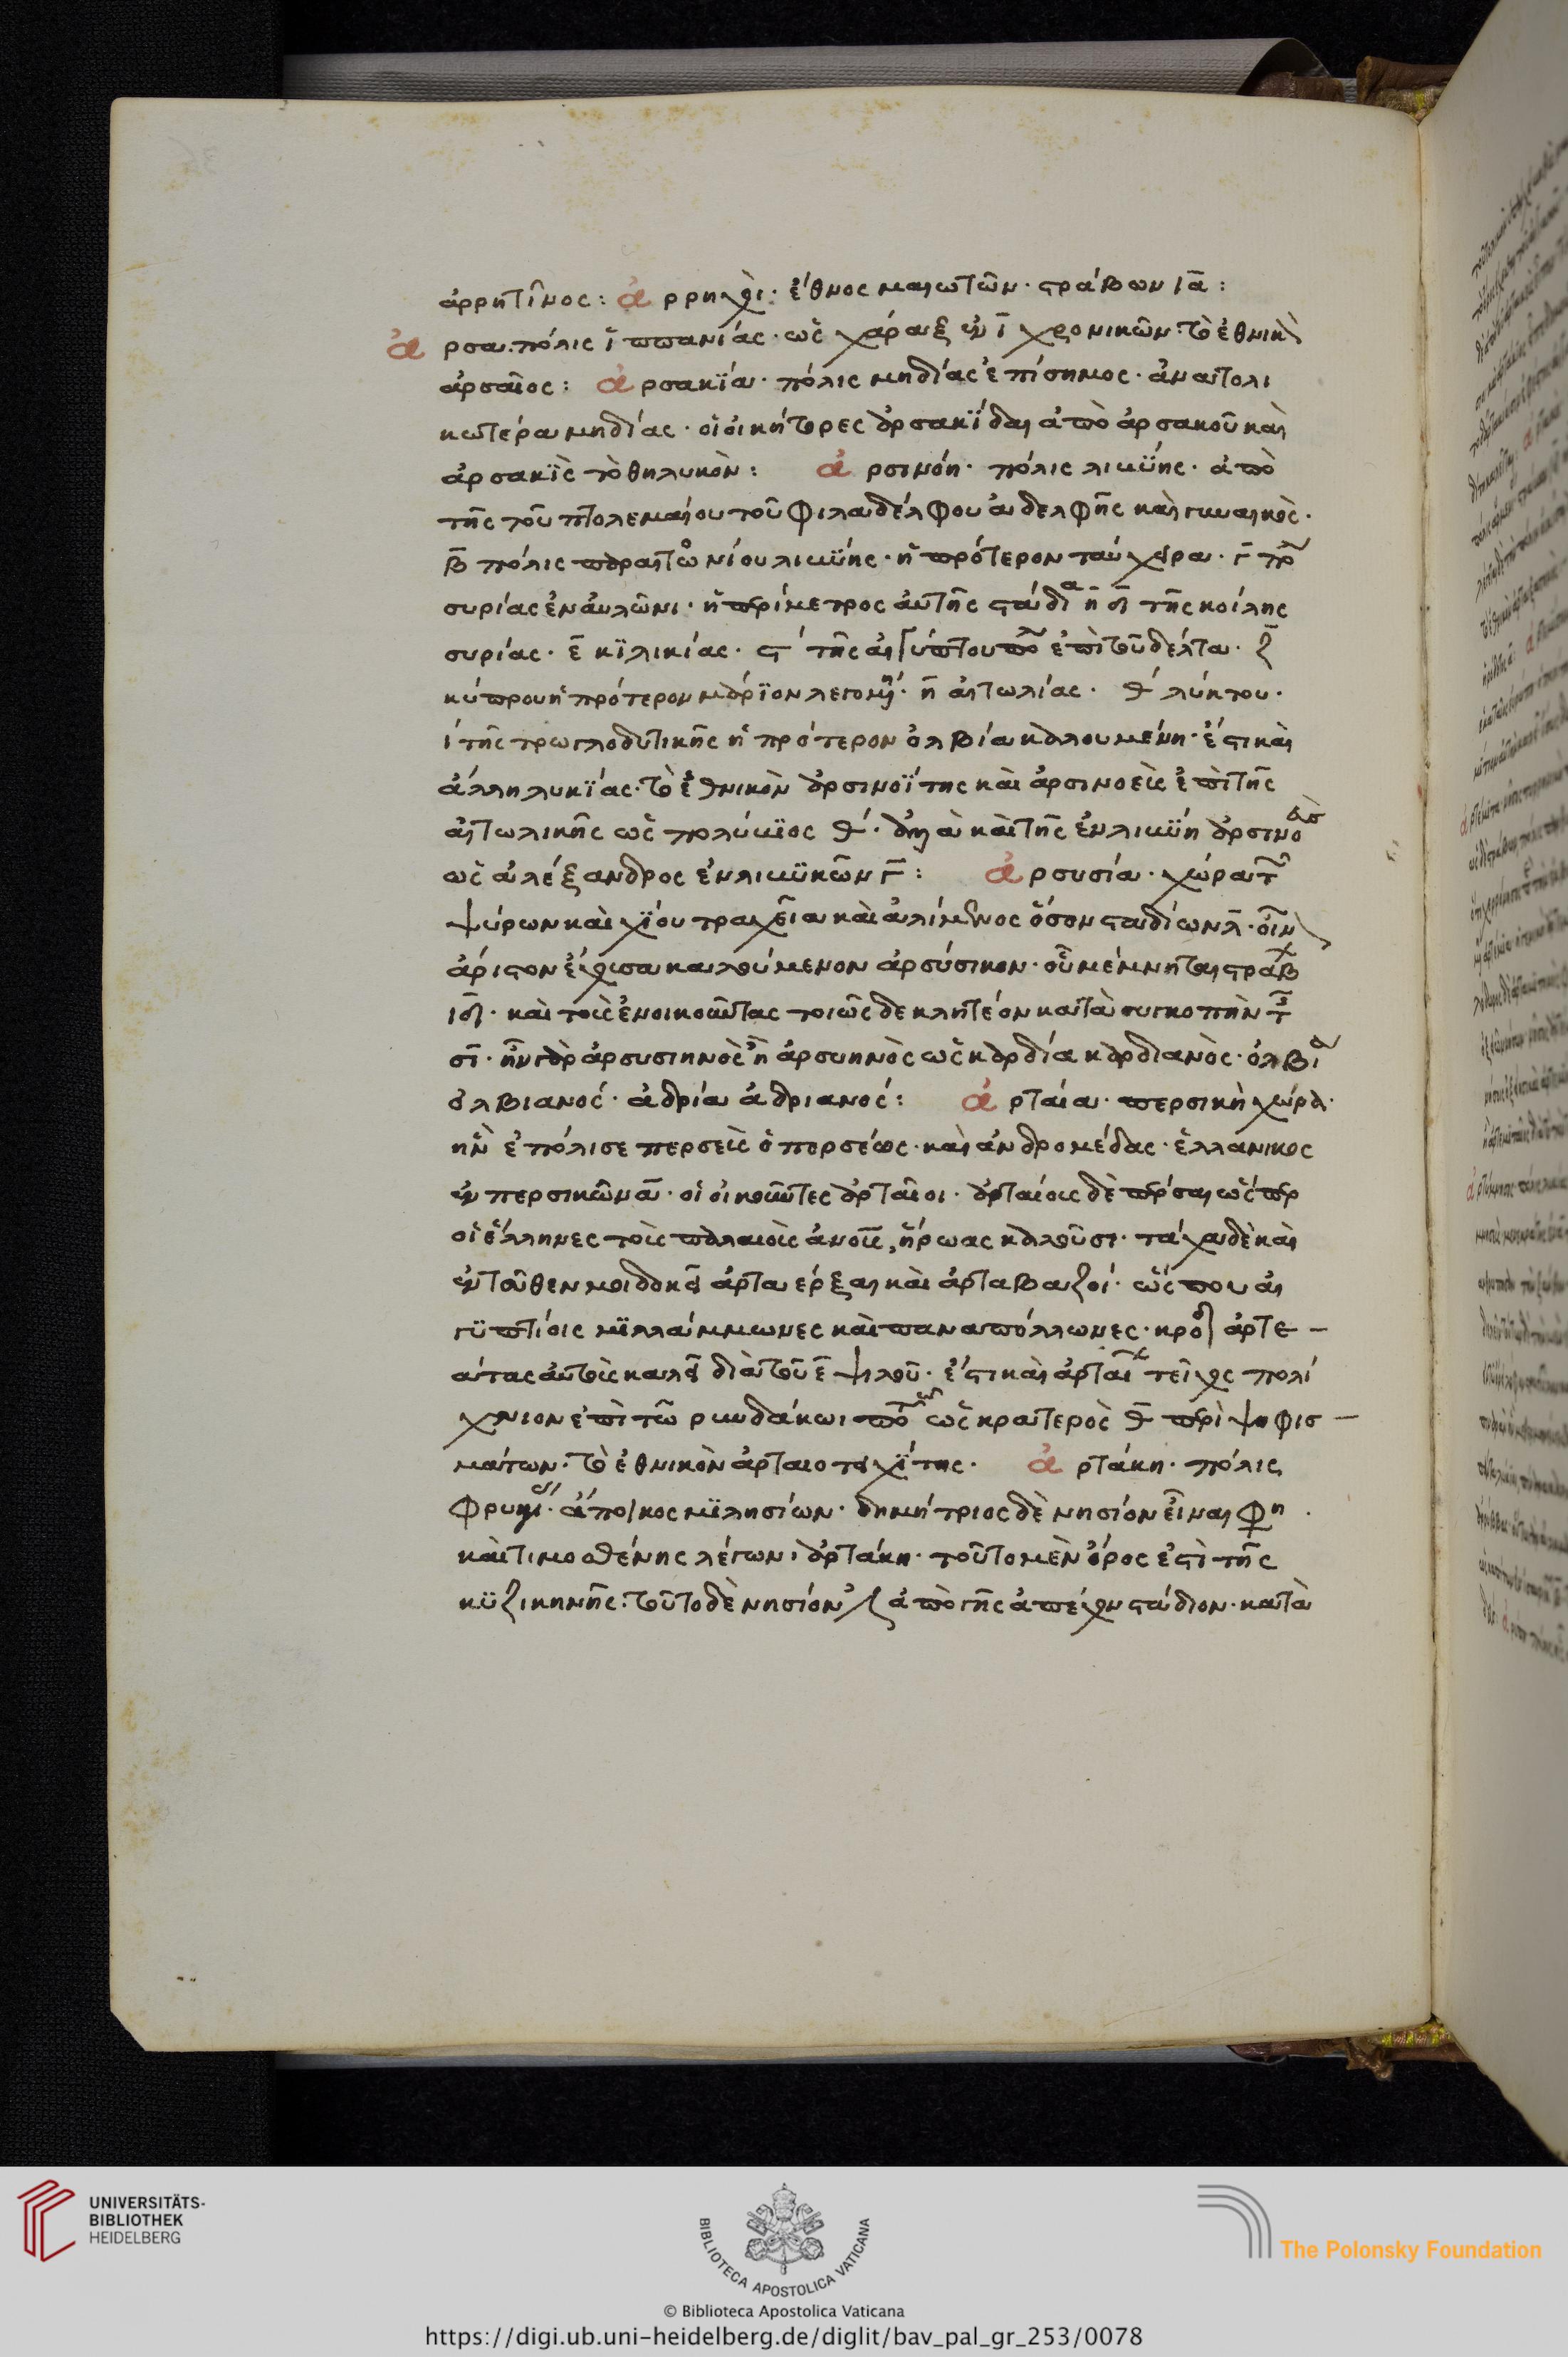 ἀρρητῖνος: ἀρρηχὸι· ἔθνος μαιωτῶν· στράβων ια:
ἄρσα. πόλις ἱσπανίας· ὡς χάραξ ἐν ι χρονικῶν· τὸ ἐθνικὸν
ἀρσαῖος: ἀρσακία· πόλις μηδίας ἐπίσημος· ἀνατολι
κωτέρα μηδίας· οἱ οἰκήτορες ἀρσακίδαι ἀπὸ ἀρσακοῦ καὶ
ἀρσακὶς τὸ θηλυκὸν: ἀρσινόη· πόλις λιβύης· ἀπὸ
τῆς τοῦ πτολεμαίου τοῦ φιλαδέλφου ἀδελφῆς καὶ γυναικὸς·
β πόλις παραιτωνίου λιβύης· ἡ πρότερον ταύχειρα· γ πόλις
συρίας ἐν αὐλῶνι· ἡ περίμετρος αὐτῆς στάδια η δ τῆς κοίλης
συρίας· ε κιλικίας· ϛ τῆς αἰγύπτου πόλις ἐπὶ τοῦ δέλτα· ζ
κύπρου ἡ πρότερον μάριον λεγομένη· η αἰτωλίας· θ λύκτου·
ι τῆς τρωγλοδυτικῆς ἡ πρότερον ὀλβία καλουμένη· ἔστι καὶ
ἄλλη λυκίας· τὸ ἐθνικὸν ἀρσινοΐτης καὶ ἀρσινοεὺς ἐπὶ τῆς
αἰτωλικῆς ὡς πολύβιος θ· καὶ τῆς ἐν λιβύη ἀρσινο
ὡς ἀλέξανδρος ἐν λιβυκῶν γ: ἀρσυσία· χώρα
ψύρων καὶ χίου τραχεῖα καὶ ἀλίμενος ὅσον σταδίων λ· οἶνον
ἄριστον ἔχουσα καλούμενον ἀρσύσιον· οὗ μέμνηται στράβ
ιδ· καὶ τοὺς ἐνοικοῦντας τοιῶς δε κλητέον κατὰ συγκοπὴν τῆς
σι· ἦν γὰρ ἀρσυσιηνὸς ἢ ἀρσυηνὸς ὡς καρδία καρδιανὸς· ὀλβία
ὀλβιανός· ἀδρία ἀδριανός: ἀρταία· περσικὴ χώρα·
ἣν ἐπόλισε περσεὺς ὁ περσέως· καὶ ἀνδρομέδας· ἑλλάνικος
ἐν περσικῶν α· οἱ οἰκοῦντες ἀρταῖοι· ἀρταίους δὲ πέρσαι ὥσπερ
οἱ ἕλληνες τοὺς παλαιοὺς ἀνοῦς, ἥρωας καλοῦσι· τάχα δὲ καὶ
ἐντεῦθεν μοι δοκεῖ ἀρταξέρξαι καὶ ἀρτάβαζοι· ὥς που αἰ
γυπτίοις μιλλάμμωνες καὶ παναπόλλωνες· ηρόδ ἀρτε —
άτας αὐτοὺς καλεῖ διὰ τοῦ ε ψιλοῦ· ἔστι καὶ ἀρταῖον τεῖχος πολί
χνιον ἐπὶ τῶ ῥυνδάκωι ὡς κρατερὸς θ περὶ ψηφισ —
μάτων. τὸ ἐθνικὸν ἀρταιοτειχίτης. ἀρτάκη· πόλις
φρυγίας· ἄποικος μιλησίων· δημήτριος δὲ νησίον εἶναι φη·
καὶ τιμοσθένης λέγων, ἀρτάκη· τοῦτο μὲν ὄρος ἐστὶ τῆς
κυζικηνῆς· τοῦτο δὲ νησίον ἐστι ἀπὸ γῆς ἀπέχον στάδιον· κατὰ
UNIVERSITÄTS-
BIBLIOTHEK
HEIDELBERG
BIBLIOTECA APOSTOLICA VATICANA
The Polonsky Foundation
© Biblioteca Apostolica Vaticana
https://digi.ub.uni-heidelberg.de/diglit/bav_pal_gr_253/0078